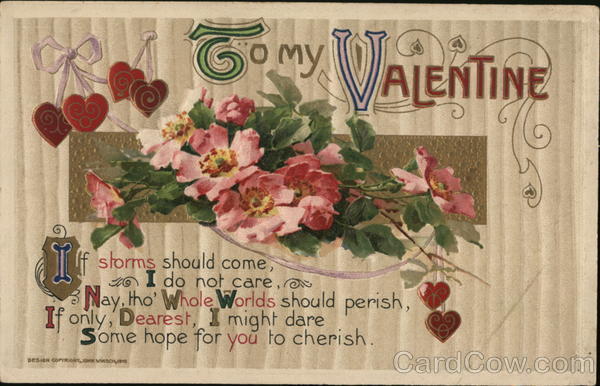 To my Valentine
If storms should come,
I do not care,
Nay, tho' Whole Worlds should perish,
If only, Dearest, I might dare
Some hope for you to cherish.
DESIGN COPYRIGHT, JOHN WINSCH, 1910
CardCow.com